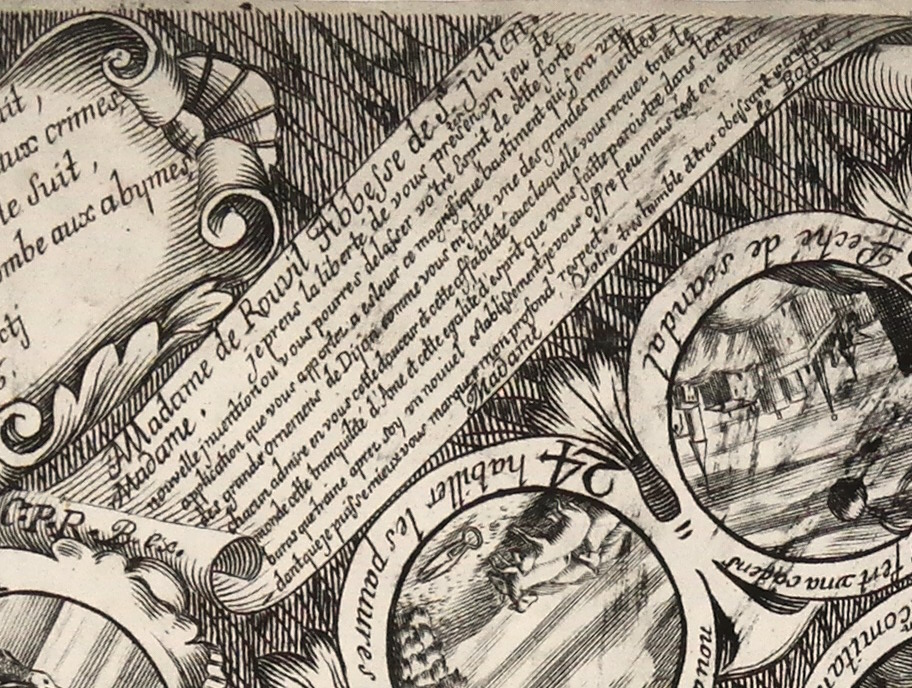 uit,
aux crimes,
le suit,
ombe aux abymes,
ctj
Madame de Rouvil Abbesse de St Julien
Madame,
je prens la liberté de vous presen un jeu de
nouvelle invention ou vous pourres delasser vôtre Esprit de cette forte
application que vous apportez a esleuer ce magnifique bastiment qui sera un
des grands ornemens de Dijon comme vous en faitte une des grandes merueilles
chacun admire en vous cette douceur et cette affabilité auec laquelle vous receuez tout le
monde cette tranquilité d'Ame et cette egalité d'esprit que vous faitte paroistre dans
qu traine apres soy un nouuel establissement je vous offre peu mais c'est en atten
dant que je puisse mieux vous marquer mon profond respect
Madame Votre tres humble & tres obeissant
C. P. P. B.
24 habiller les pauures
Peché de scandal
nou
comitan